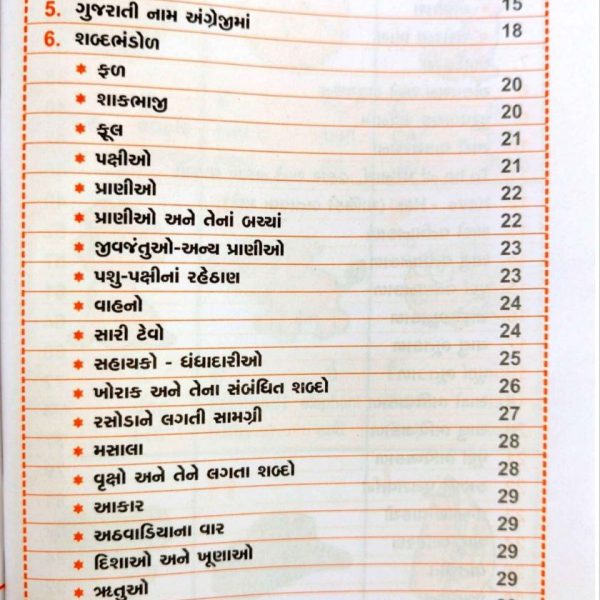 5. ગુજરાતી નામ અંગ્રેજીમાં 15
6. શબ્દભંડોળ 18
* ફળ 20
* શાકભાજી 20
* ફૂલ 21
* પક્ષીઓ 21
* પ્રાણીઓ 22
* પ્રાણીઓ અને તેનાં બચ્ચાં 22
* જીવજંતુઓ-અન્ય પ્રાણીઓ 23
* પશુ-પક્ષીનાં રહેઠાણ 23
* વાહનો 24
* સારી ટેવો 24
* સહાયકો - ધંધાદારીઓ 25
* ખોરાક અને તેના સંબંધિત શબ્દો 26
* રસોડાને લગતી સામગ્રી 27
* મસાલા 28
* વૃક્ષો અને તેને લગતા શબ્દો 28
* આકાર 29
* અઠવાડિયાના વાર 29
* દિશાઓ અને ખૂણાઓ 29
* ઋતુઓ 29